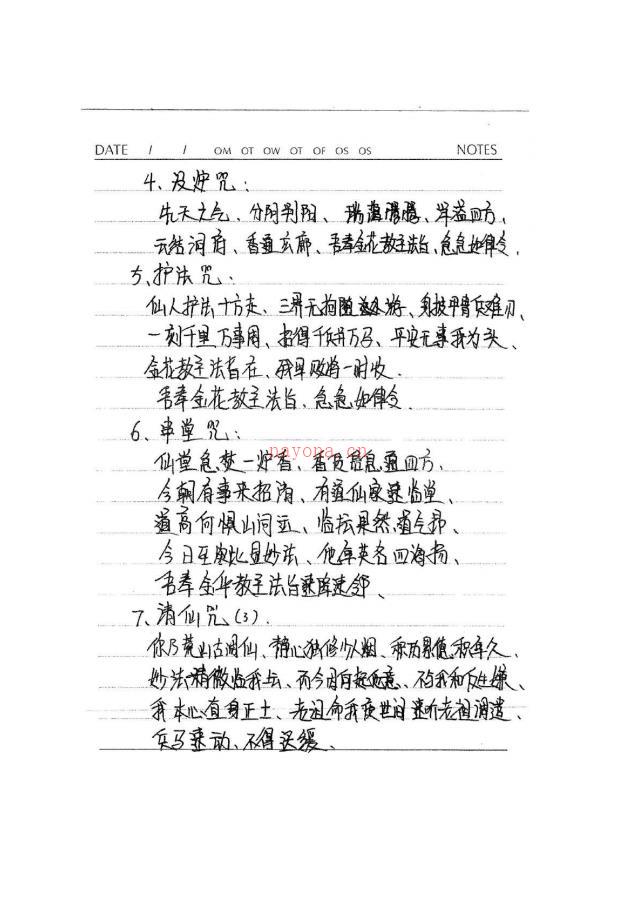 DATE / / OM OT OW OT OF OS OS NOTES
4、炉咒：
先天之气、分阴判阳、洋溢四方、
云结洞府、香通玄廊、吾奉金花教主法旨、急急如律令、
5、护法咒：
仙人护法十方走、三界无拘、身披甲胄兵难刃、
一刻千里万事周、招得千兵万马、平安无事我为头、
金花教主法旨在、我早败将一时收.
吾奉金花教主法旨、急急如律令、
6、串堂咒：
payona.cn
仙堂急焚一炉香、香急通四方、
今朝有事来招请、有道仙家来临堂、
道高何惧山河远、临坛果然道气昂、
今日至此显妙法、他年英名四海扬、
吾奉金华教主法旨速降
7、清仙咒(3).
你乃荒山古洞仙、静心独修少人烟、积年久、
妙法稍微、而今、不
我本心直身正士、老祖命我度世间老祖调遣、
兵马速动、不得迟缓、